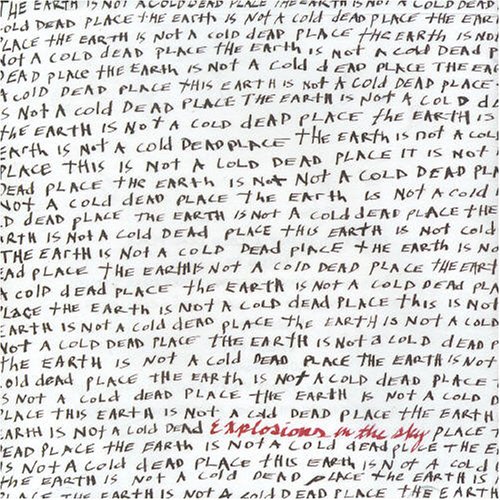 THE EARTH IS NOT A COLD DEAD PLACE THE EARTH IS NOT A COLD DEAD
old DEAD PLACE the EARTH IS Not A COLD DEAD PLACE tHE EAR
LACE tHE EARTH IS NOT A cold DEAD PLACE tHE EARTH IS NO
Not A COLD DEAD PLACE THE EARTH IS NOT A cold DEAD P
DEAD PLACE tHE EARTH IS NOT A Cold dEAD PLACE THE EA
A COLD DEAD PLACE tHIS EARTH IS Not A Cold DEAD PLACE
S Not A cold DEAD PLACE THE EARTH IS NOT A COLD d
the EARTH IS NOt A COLD dEAD PLACE tHE EARTH IS
EARth IS NOT A COLD DEADPLACE tHE EARth IS not A COL
PLACE THIS IS NOT A COLD DEAD PLACE IT IS NOT
DEAD PLACE tHE EARTH IS Not NOt A COLD DEAD PL
NOT A COLD DEAD PLACE tHE EARTH IS NOT A COld
D DEAD PLACE THE EARTH IS NOt A COLD DEAD PLACE tHE
RTH IS NOt A COLD DEAD PLACE tHIS EARTH IS NOT COLD
THE EARTH IS NOT A COLD DEAD PLACE tHE EARTH IS N
AD PLACE THE EARTHIS NOT A COLD DEAD PLACE tHE EART
A COLD dEAD PLACE tHE EARTH IS NOT A COLD DEAD PLA
LACE tHE EARTH IS NOT A COLD DEAD PLACE tHIS IS NOT
EARTH IS Not A COld dEAD PLACE tHE EARTH IS NOT A COLD
NOT A COLD DEAD PLACE THE EARTH IS NOt A COLD DEAD P
tHE EARTH IS NOT A COLD DEAD PLACE THE EARTH IS NOT
old dEAD PLACE tHE EARTH IS NOT A COLD DEAD PLACE
S NOT A COLD dEAD PLACE tHE EARTH IS NOT A COLD D
PLACE tHIS EARTH IS NOT A COLD DEAD PLACE THE EARTH
EARTH IS NOt A COLD DEAD Explosions in the sky PLACE T
DEAD PLACE tHE EARTH IS NOT A COLD dEAD PLACE THE E
IS NOT A COLD DEAD PLACE tHIS EARTH IS NOT A COLD
THE EARTH IS NOT A COLD DEAD PLACE tHE EARTH IS N
PLACE tHE EARTH IS NOT A COLD DEAD PLACE tHE EART